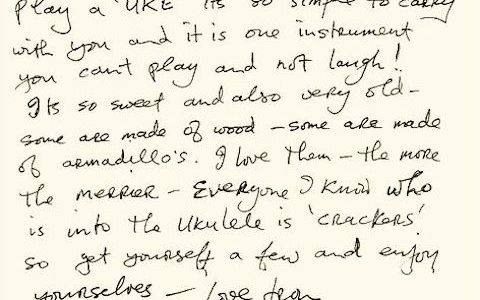 Play a 'UKE' its so simple to carry
with you and it is one instrument
you cant play and not laugh!
Its so sweet and also very old-
some are made of wood - some are made
of armadillo's. I love them - the more
the merrier - Everyone I know who
is into the Ukulele is 'crackers'
so get yourself a few and enjoy
yourselves - love from